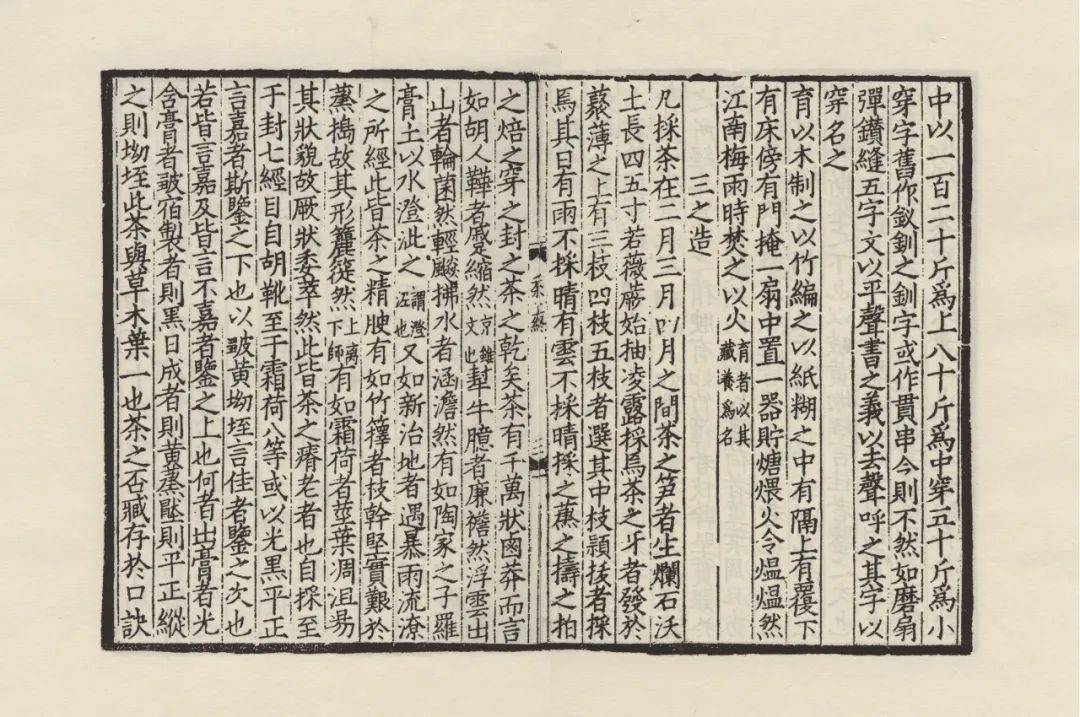 中以一百二十斤爲上八十斤爲中穿五十斤爲小
穿字舊作釵釧之釧字或作貫串今則不然如磨扇
彈鑽縫五字文以平聲書之義以去聲呼之其字以
穿名之
育以木制之以竹編之以紙糊之中有隔上有覆下
有床傍有門掩一扇中置一器貯煻煨火令熅熅然
江南梅雨時焚之以火育者以其藏養爲名
三之造
凡採茶在二月三月四月之間茶之笋者生爛石沃
土長四五寸若薇蕨始抽凌露採焉茶之牙者發於
藂薄之上有三枝四枝五枝者選其中枝頴拔者採
焉其日有雨不採晴有雲不採晴採之蒸之擣之拍
之焙之穿之封之茶之乾矣茶有千萬狀鹵莽而言
如胡人鞾者蹙縮然京錐文也犎牛臆者廉襜然浮雲出
山者輪菌然輕飈拂水者涵澹然有如陶家之子羅
膏土以水澄泚之謂澄泥也又如新治地者遇暴雨流潦
之所經此皆茶之精腴有如竹籜者枝幹堅實艱於
蒸搗故其形籭簁然上离下師有如霜荷者莖葉凋沮易
其狀貌故厥狀委萃然此皆茶之瘠老者也自採至
于封七經目自胡靴至于霜荷八等或以光黑平正
言嘉者斯鑒之下也以皺黄坳垤言佳者鑒之次也
若皆言嘉及皆言不嘉者鑒之上也何者出膏者光
含膏者皺宿製者則黑日成者則黄蒸壓則平正縱
之則坳垤此茶與草木葉一也茶之否臧存於口訣